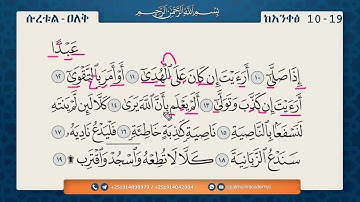 ሱረቱል-ዐለቅ
بِسْمِ اللَّهِ الرَّحْمَٰنِ الرَّحِيمِ
ከአንቀፅ 10-19
عَبْدًا
إِذَا صَلَّىٰٓ ١٠ أَرَءَيْتَ إِن كَانَ عَلَى ٱلْهُدَىٰٓ ١١ أَوْ أَمَرَ بِٱلتَّقْوَىٰٓ ١٢
أَرَءَيْتَ إِن كَذَّبَ وَتَوَلَّىٰٓ ١٣ أَلَمْ يَعْلَم بِأَنَّ ٱللَّهَ يَرَىٰ ١٤ كَلَّا لَئِن لَّمْ يَنتَهِ
لَنَسْفَعًۢا بِٱلنَّاصِيَةِ ١٥ نَاصِيَةٍ كَٰذِبَةٍ خَاطِئَةٍ ١٦ فَلْيَدْعُ نَادِيَهُۥ ١٧
سَنَدْعُ ٱلزَّبَانِيَةَ ١٨ كَلَّا لَا تُطِعْهُ وَٱسْجُدْ وَٱقْتَرِب ۩ ١٩